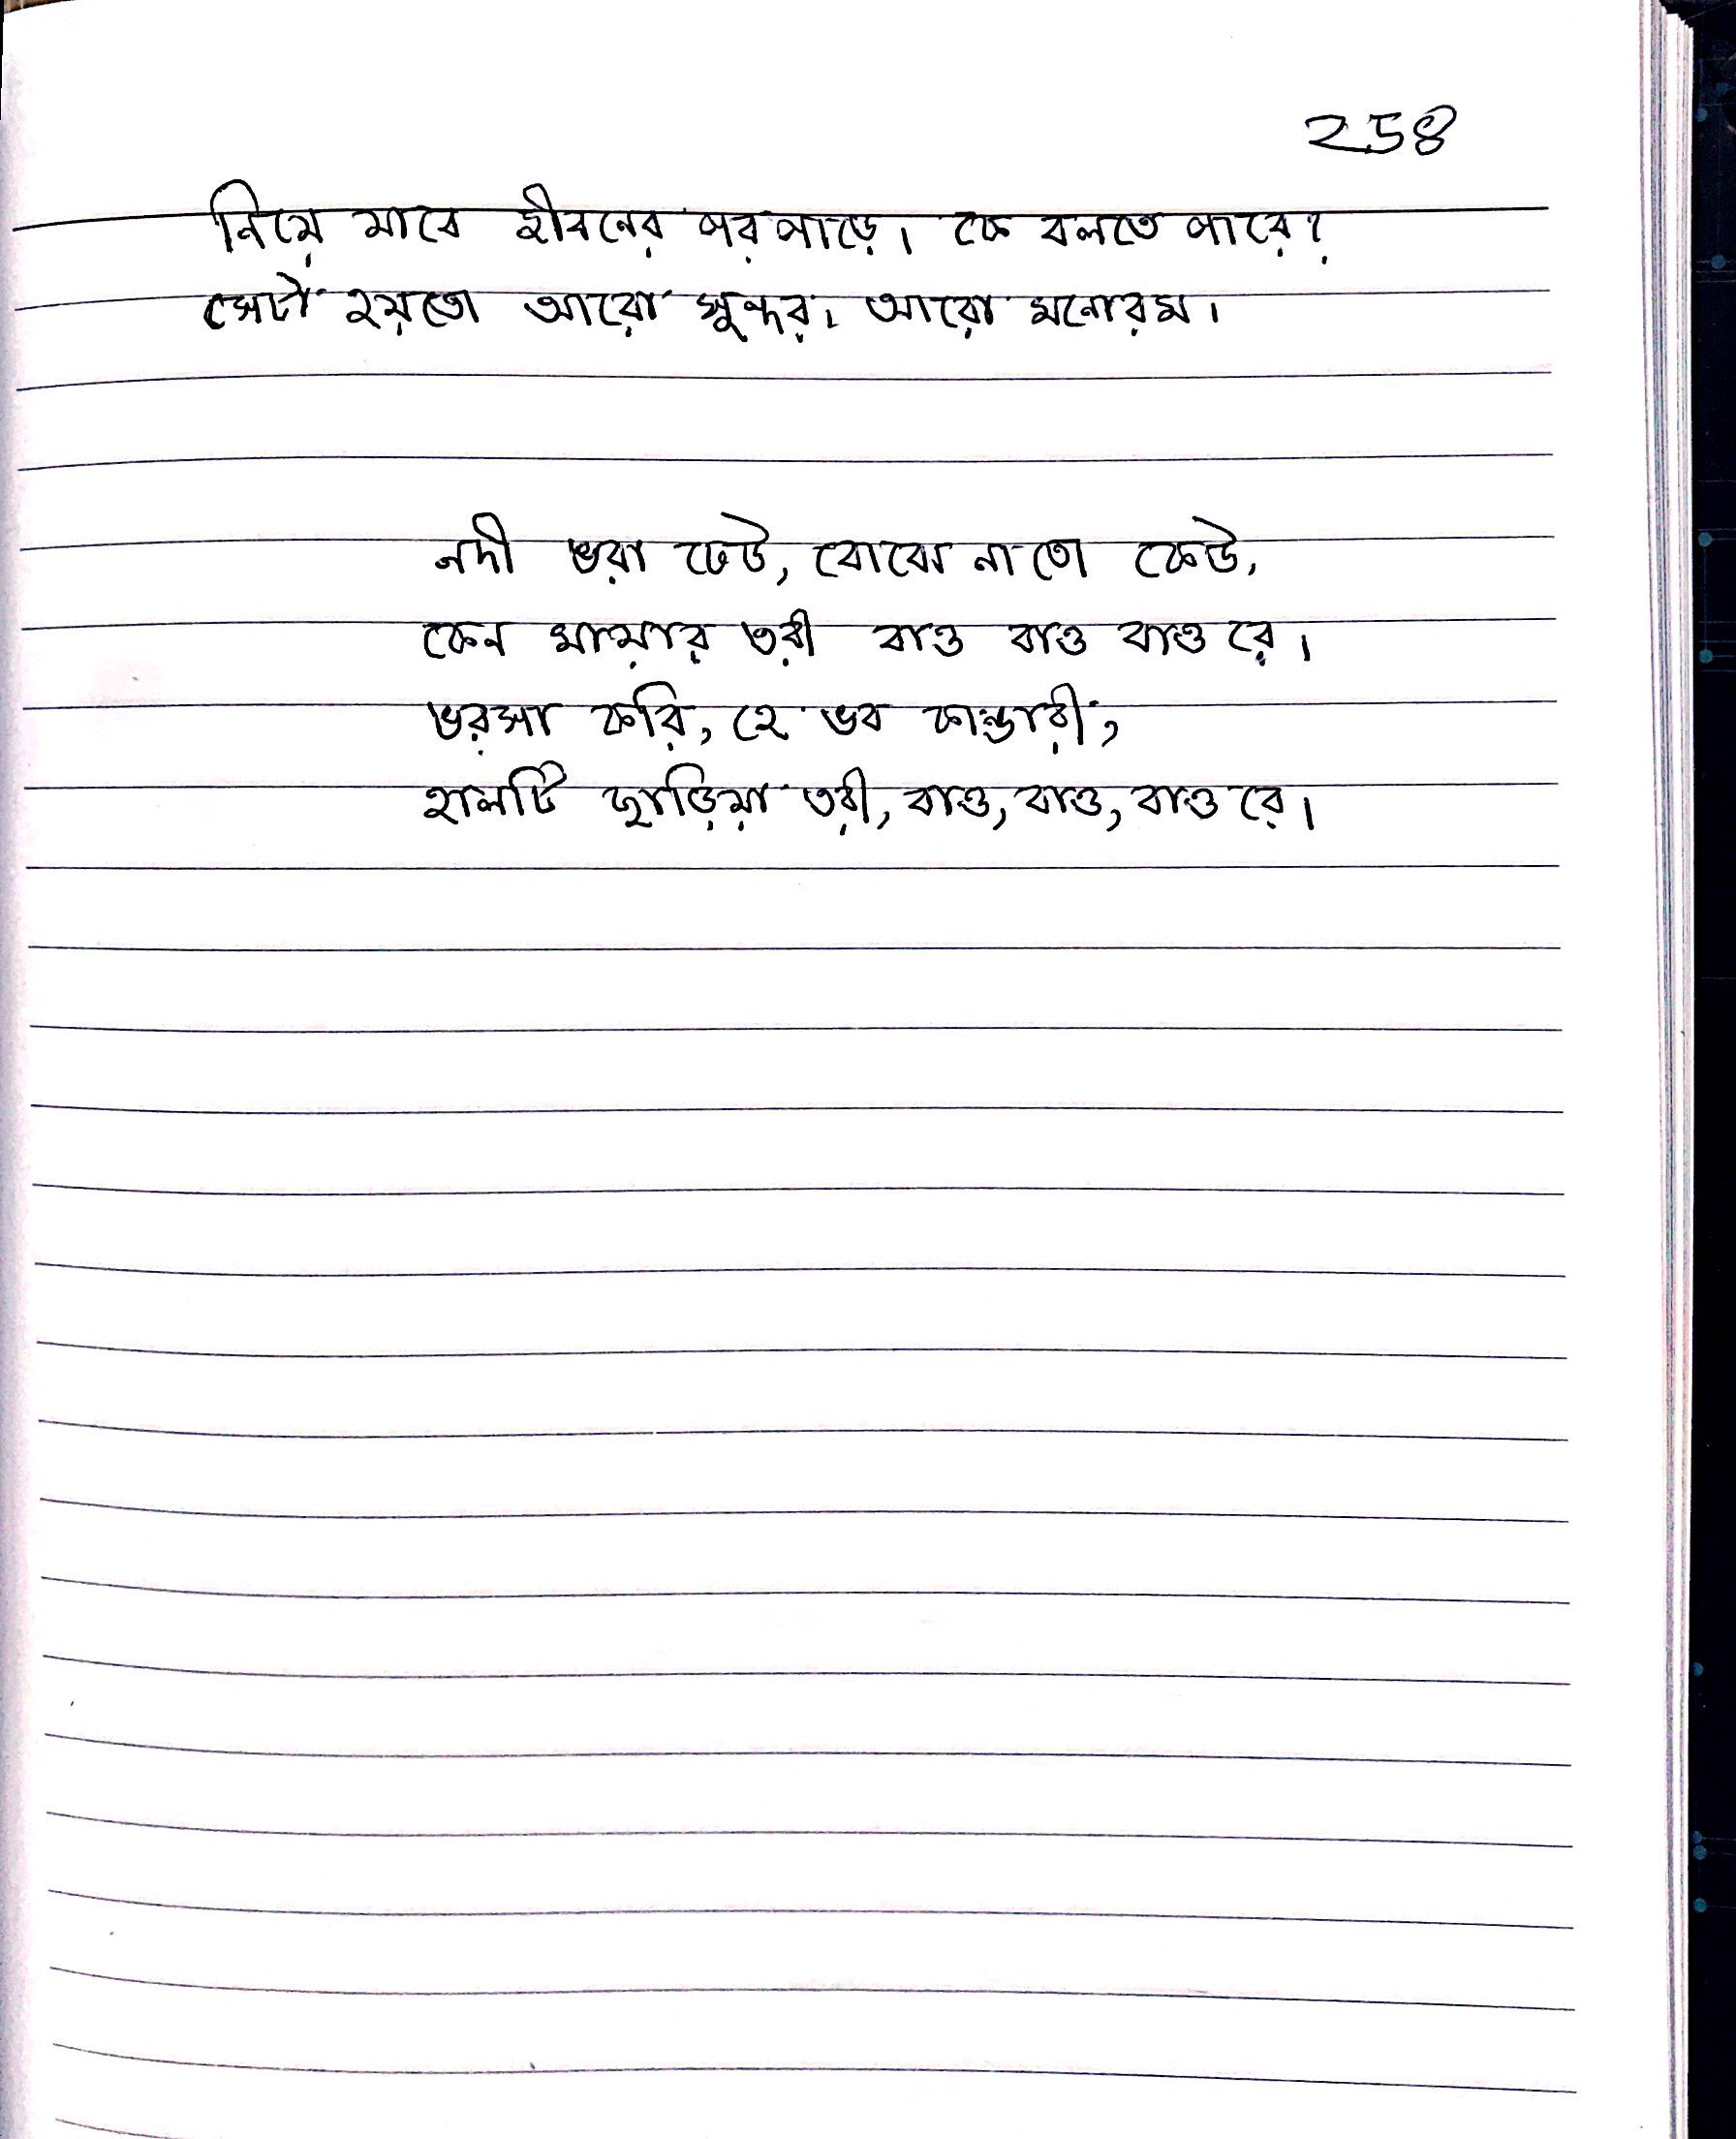 258
নিয়ে যাবে জীবনের পরপাড়ে। কে বলতে পারে?
সেটা হয়তো আরো সুন্দর। আরো মনোরম।
নদী ভরা ঢেউ, বোঝে না তো কেউ,
কেন মায়ার তরী বাও বাও বাও রে।
ভরসা করি, হে ভব কান্ডারী,
হালটি ছাড়িয়া তরী, বাও, বাও, বাও রে।